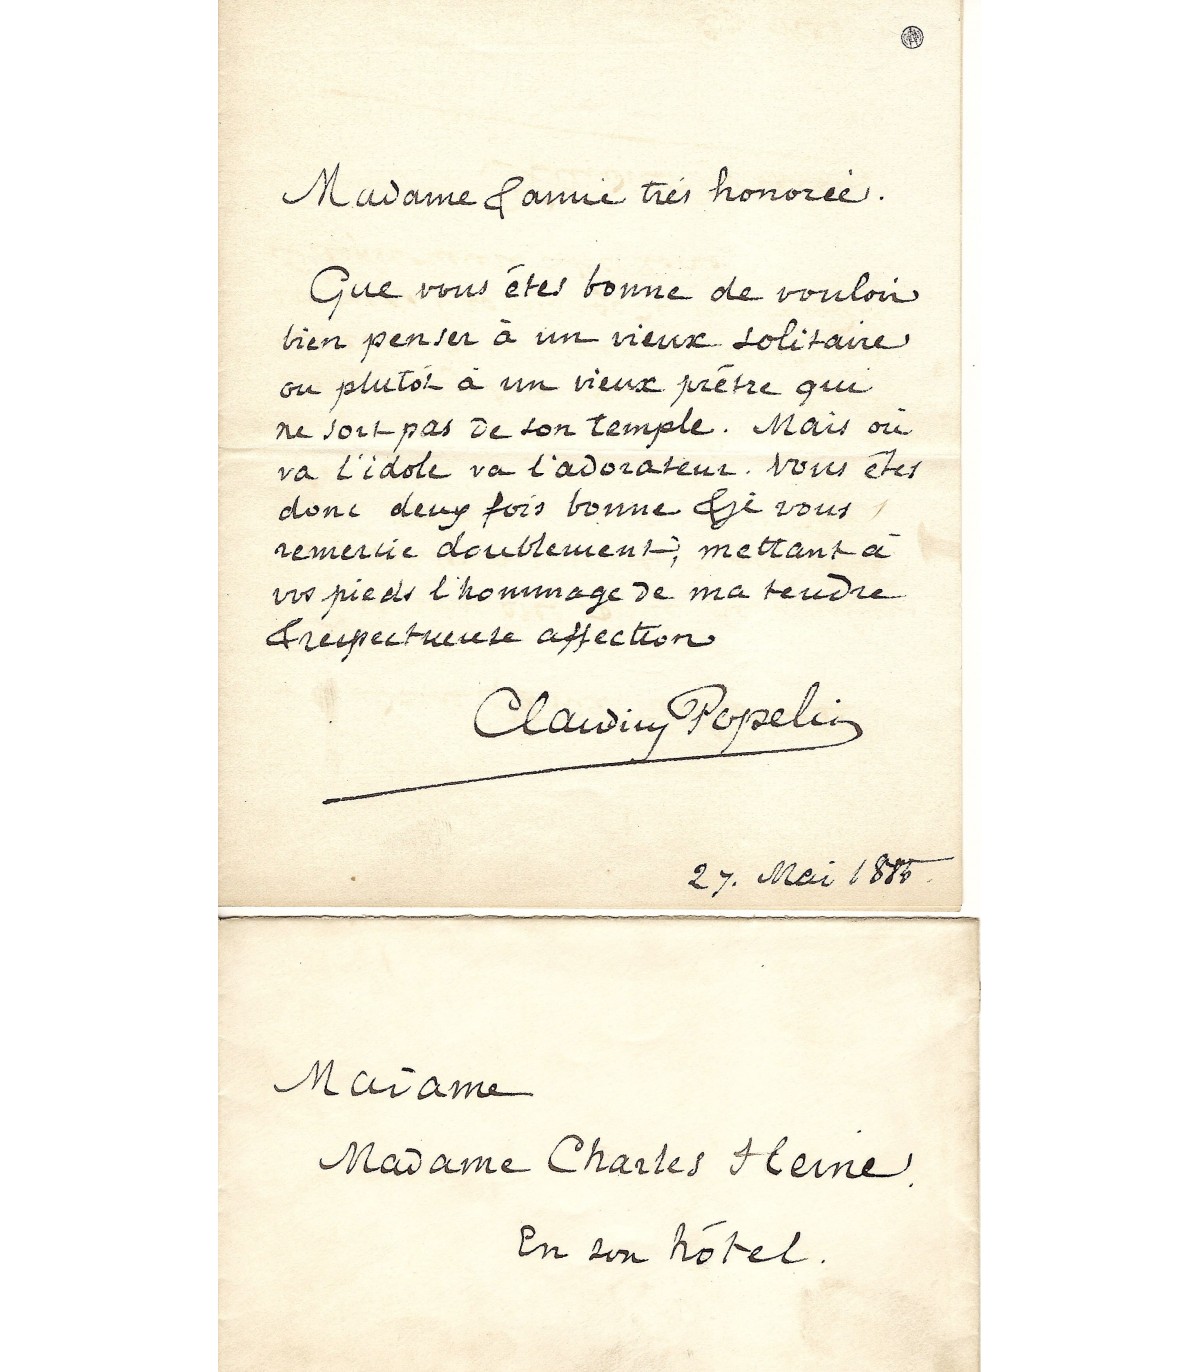 Madame & amie très honorée.
Que vous êtes bonne de vouloir
bien penser à un vieux solitaire
ou plutôt à un vieux prêtre qui
ne sort pas de son temple. Mais où
va l'idole va l'adorateur. Vous êtes
donc deux fois bonne & je vous
remercie doublement, mettant à
vos pieds l'hommage de ma tendre
& respectueuse affection
Claudius Popelin
27. Mai
Madame
Madame Charles Heine.
En son hôtel.